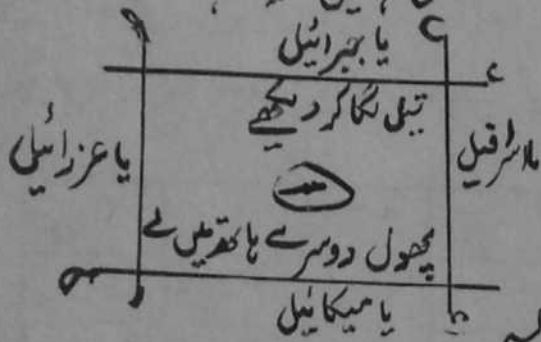 یا جبرائیل
تیل لگا کر دیکھے
یا عزرائیل
یا اسرافیل
پھول دوسرے ہاتھ میں لے
یا میکائیل